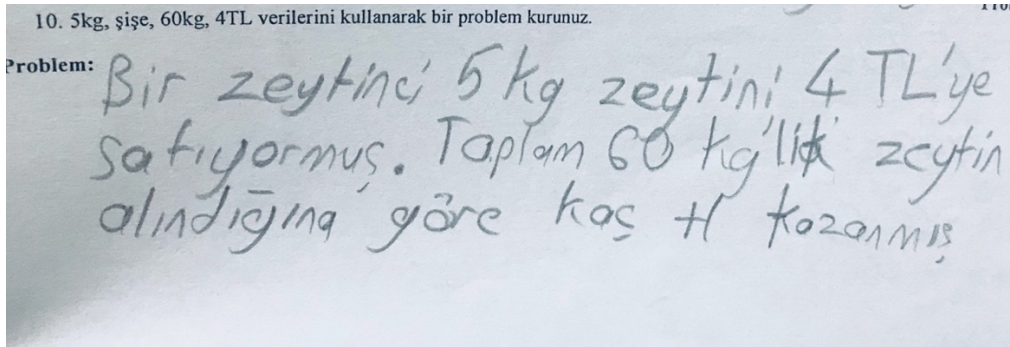 10. 5kg, şişe, 60kg, 4TL verilerini kullanarak bir problem kurunuz.
Problem: Bir zeytinci 5 kg zeytini 4 TL'ye
satıyormuş. Toplam 60 kg'lik zeytin
alındığına göre kaç tl kazanmış